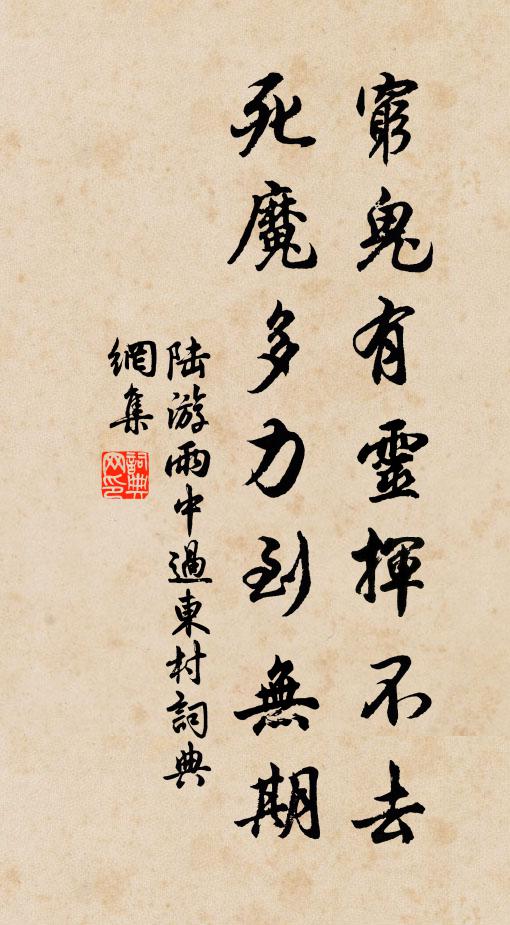 窮鬼有靈揮不去
死魔多力到無期
陆游雨中過東村詞典
網集
詞典
网印